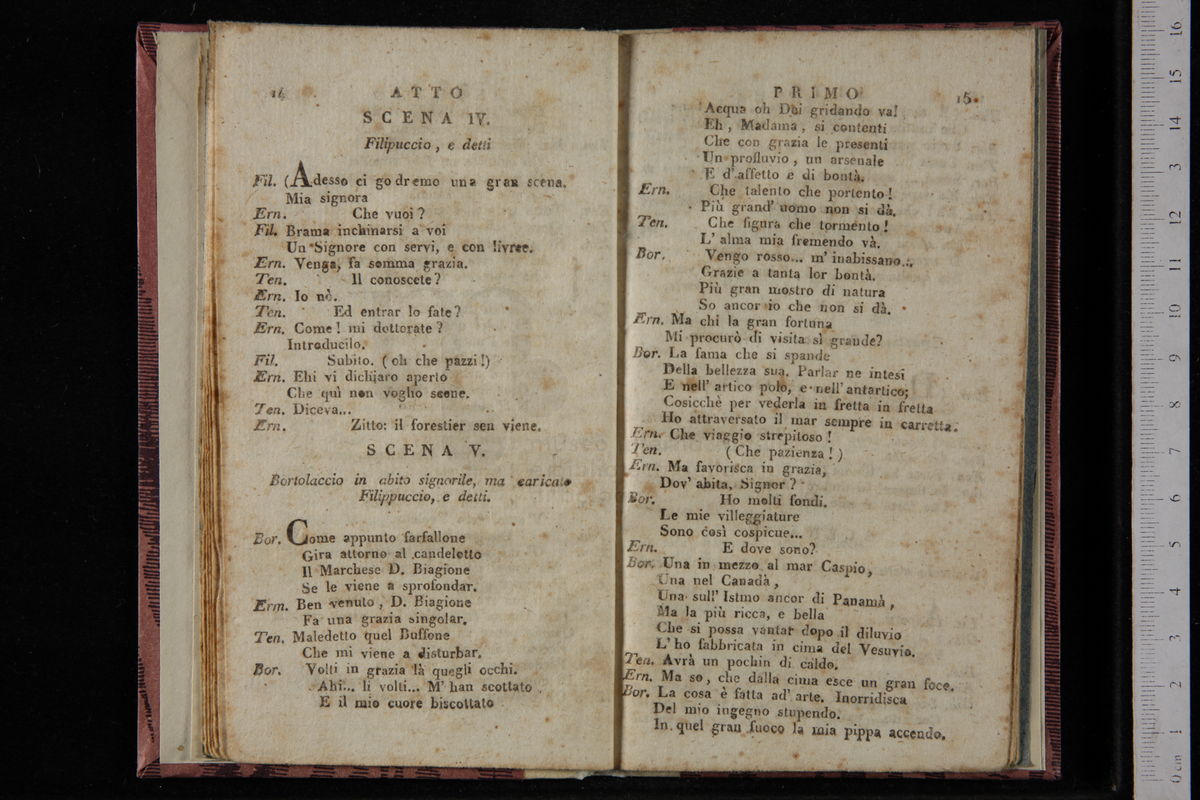 14 ATTO
SCENA IV.
Filipuccio, e detti
Fil. (Adesso ci godremo una gran scena.
Mia signora
Ern. Che vuoi?
Fil. Brama inchinarsi a voi
Un Signore con servi, e con livree.
Ern. Venga, fa somma grazia.
Ten. Il conoscete?
Ern. Io nò.
Ten. Ed entrar lo fate?
Ern. Come! mi dottorate?
Introducilo.
Fil. Subito. (oh che pazzi!)
Ern. Ehi vi dichiaro aperto
Che quì non voglio scene.
Ten. Diceva...
Ern. Zitto: il forestier sen viene.
SCENA V.
Bortolaccio in abito signorile, ma caricato
Filippuccio, e detti.
Bor. Come appunto farfallone
Gira attorno al candelotto
Il Marchese D. Biagione
Se le viene a sprofondar.
Erm. Ben venuto, D. Biagione
Fa una grazia singolar.
Ten. Maledetto quel Buffone
Che mi viene a disturbar.
Bor. Volti in grazia là quegli occhi.
Ahi... li volti... M' han scottato
E il mio cuore biscottato
PRIMO 15.
Acqua oh Dei gridando va!
Eh, Madama, si contenti
Che con grazia le presenti
Un profluvio, un arsenale
E d'affetto e di bontà.
Ern. Che talento che portento!
Più grand' uomo non si dà.
Ten. Che figura che tormento!
L' alma mia fremendo và.
Bor. Vengo rosso... m' inabissano...
Grazie a tanta lor bontà.
Più gran mostro di natura
So ancor io che non si dà.
Ern. Ma chi la gran fortuna
Mi procurò di visita sì grande?
Bor. La fama che si spande
Della bellezza sua. Parlar ne intesi
E nell' artico polo, e nell' antartico;
Cosicchè per vederla in fretta in fretta
Ho attraversato il mar sempre in carretta.
Ern. Che viaggio strepitoso!
Ten. (Che pazienza!)
Ern. Ma favorisca in grazia,
Dov' abita, Signor?
Bor. Ho molti fondi.
Le mie villeggiature
Sono così cospicue...
Ern. E dove sono?
Bor. Una in mezzo al mar Caspio,
Una nel Canadà,
Una sull' Istmo ancor di Panamà,
Ma la più ricca, e bella
Che si possa vantar dopo il diluvio
L' ho fabbricata in cima del Vesuvio.
Ten. Avrà un pochin di caldo.
Ern. Ma so, che dalla cima esce un gran foce.
Bor. La cosa è fatta ad' arte. Inorridisca
Del mio ingegno stupendo.
In quel gran fuoco la mia pippa accendo.
0 cm 1 2 3 4 5 6 7 8 9 10 11 12 13 14 15 16